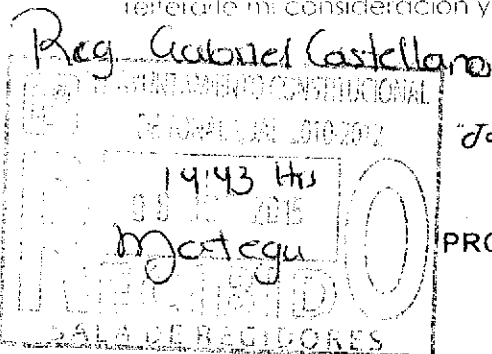 reiterarle mi consideración y
Reg. Gabriel Castellano
AYUNTAMIENTO CONSTITUCIONAL
DE TONALA, JAL. 2010-2012
14:43 Hrs
PRO
RECIBIDO
SALA DE REGIDORES